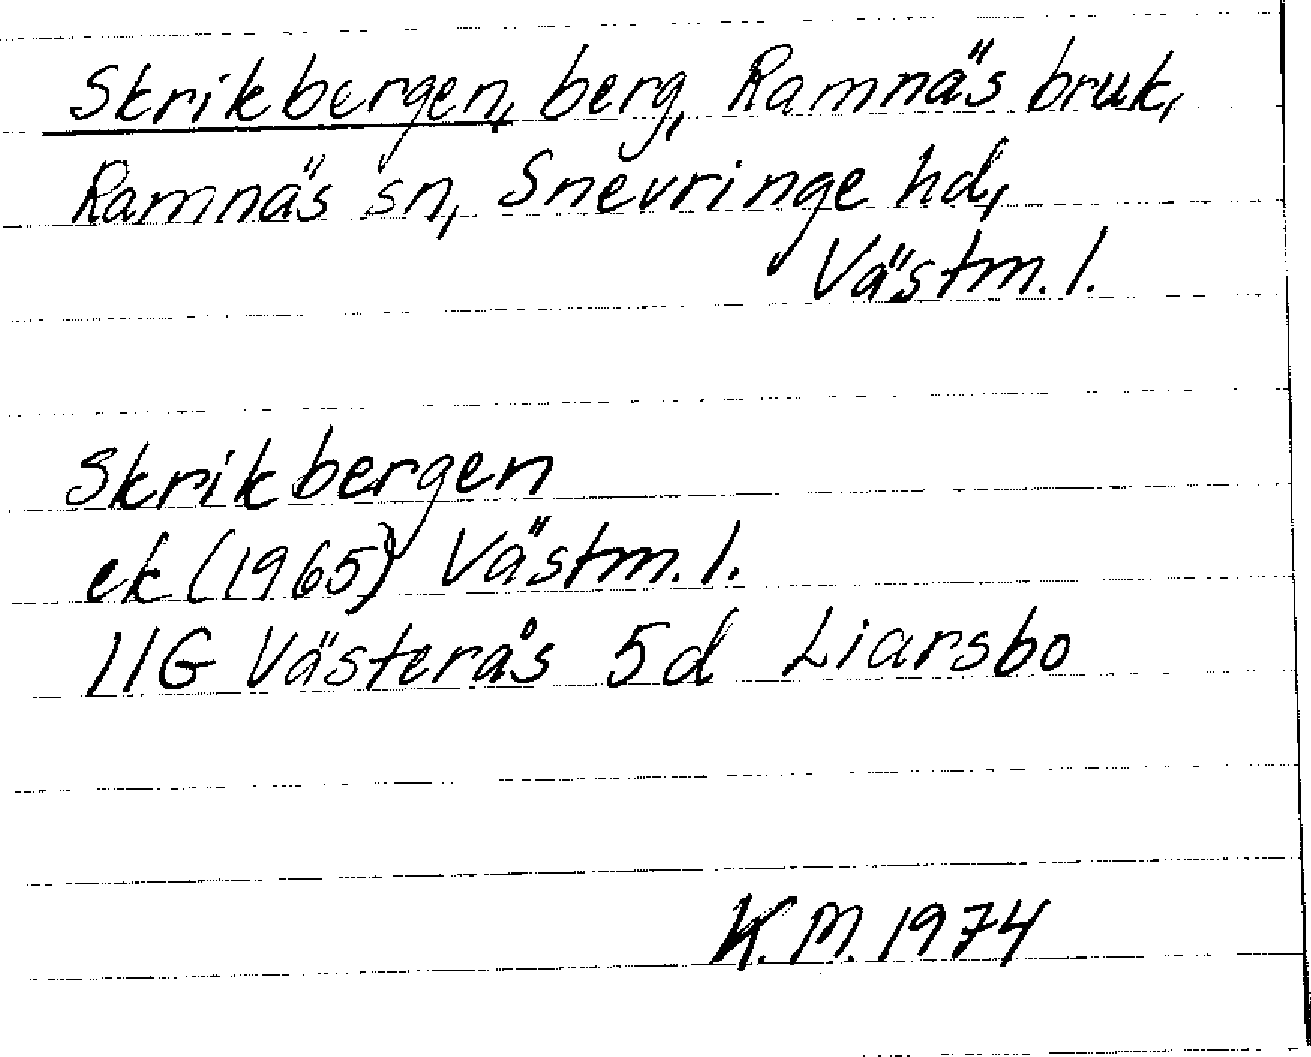 Skrikbergen, berg, Ramnäs bruk,
Ramnäs sn, Snevringe hd,
Västm. l.
Skrikbergen
ek (1965) Västm. l.
11G Västerås 5d Liarsbo
K.M. 1974